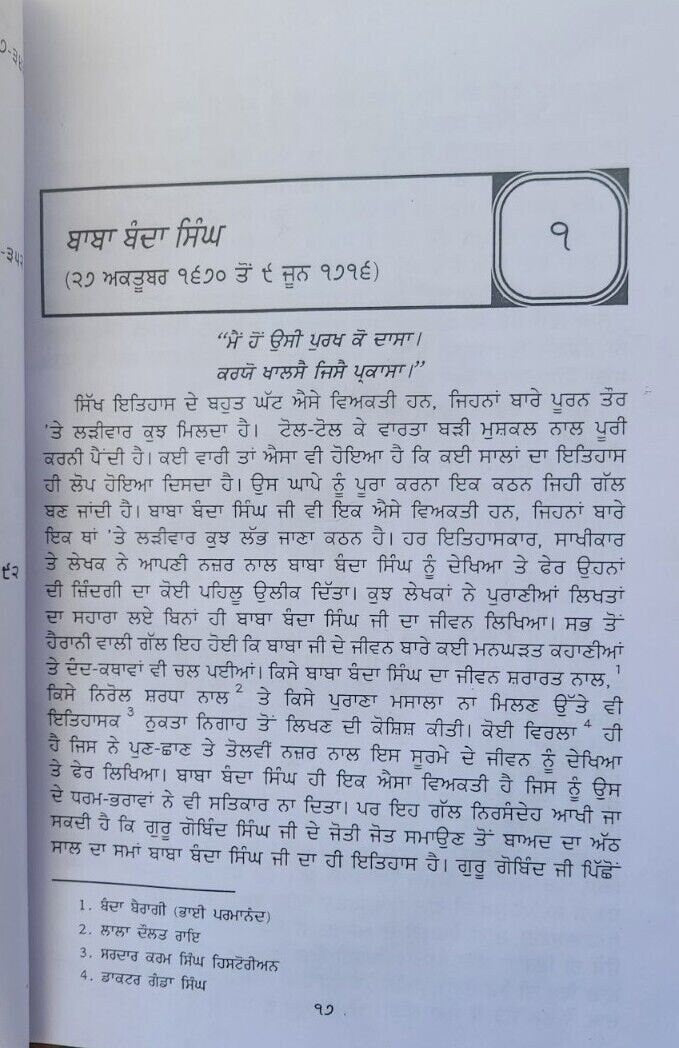 ੭-੩੪
-੩੫੨
੯੨
ਬਾਬਾ ਬੰਦਾ ਸਿੰਘ
(੨੭ ਅਕਤੂਬਰ ੧੬੭੦ ਤੋਂ ੯ ਜੂਨ ੧੭੧੬)
੧
“ਮੈਂ ਹੋਂ ਉਸੀ ਪੁਰਖ ਕੋ ਦਾਸਾ।
ਕਰਯੋ ਖਾਲਸੈ ਜਿਸੈ ਪ੍ਰਕਾਸਾ।”
ਸਿੱਖ ਇਤਿਹਾਸ ਦੇ ਬਹੁਤ ਘੱਟ ਐਸੇ ਵਿਅਕਤੀ ਹਨ, ਜਿਹਨਾਂ ਬਾਰੇ ਪੂਰਨ ਤੌਰ
’ਤੇ ਲੜੀਵਾਰ ਕੁਝ ਮਿਲਦਾ ਹੈ। ਟੋਲ-ਟੋਲ ਕੇ ਵਾਰਤਾ ਬੜੀ ਮੁਸ਼ਕਲ ਨਾਲ ਪੂਰੀ
ਕਰਨੀ ਪੈਂਦੀ ਹੈ। ਕਈ ਵਾਰੀ ਤਾਂ ਐਸਾ ਵੀ ਹੋਇਆ ਹੈ ਕਿ ਕਈ ਸਾਲਾਂ ਦਾ ਇਤਿਹਾਸ
ਹੀ ਲੋਪ ਹੋਇਆ ਦਿਸਦਾ ਹੈ। ਉਸ ਘਾਪੇ ਨੂੰ ਪੂਰਾ ਕਰਨਾ ਇਕ ਕਠਨ ਜਿਹੀ ਗੱਲ
ਬਣ ਜਾਂਦੀ ਹੈ। ਬਾਬਾ ਬੰਦਾ ਸਿੰਘ ਜੀ ਵੀ ਇਕ ਐਸੇ ਵਿਅਕਤੀ ਹਨ, ਜਿਹਨਾਂ ਬਾਰੇ
ਇਕ ਥਾਂ ’ਤੇ ਲੜੀਵਾਰ ਕੁਝ ਲੱਭ ਜਾਣਾ ਕਠਨ ਹੈ। ਹਰ ਇਤਿਹਾਸਕਾਰ, ਸਾਖੀਕਾਰ
ਤੇ ਲੇਖਕ ਨੇ ਆਪਣੀ ਨਜ਼ਰ ਨਾਲ ਬਾਬਾ ਬੰਦਾ ਸਿੰਘ ਨੂੰ ਦੇਖਿਆ ਤੇ ਫੇਰ ਉਹਨਾਂ
ਦੀ ਜ਼ਿੰਦਗੀ ਦਾ ਕੋਈ ਪਹਿਲੂ ਉਲੀਕ ਦਿੱਤਾ। ਕੁਝ ਲੇਖਕਾਂ ਨੇ ਪੁਰਾਣੀਆਂ ਲਿਖਤਾਂ
ਦਾ ਸਹਾਰਾ ਲਏ ਬਿਨਾਂ ਹੀ ਬਾਬਾ ਬੰਦਾ ਸਿੰਘ ਜੀ ਦਾ ਜੀਵਨ ਲਿਖਿਆ। ਸਭ ਤੋਂ
ਹੈਰਾਨੀ ਵਾਲੀ ਗੱਲ ਇਹ ਹੋਈ ਕਿ ਬਾਬਾ ਜੀ ਦੇ ਜੀਵਨ ਬਾਰੇ ਕਈ ਮਨਘੜਤ ਕਹਾਣੀਆਂ
ਤੇ ਦੰਦ-ਕਥਾਵਾਂ ਵੀ ਚਲ ਪਈਆਂ। ਕਿਸੇ ਬਾਬਾ ਬੰਦਾ ਸਿੰਘ ਦਾ ਜੀਵਨ ਸ਼ਰਾਰਤ ਨਾਲ,¹
ਕਿਸੇ ਨਿਰੋਲ ਸ਼ਰਧਾ ਨਾਲ² ਤੇ ਕਿਸੇ ਪੁਰਾਣਾ ਮਸਾਲਾ ਨਾ ਮਿਲਣ ਉੱਤੇ ਵੀ
ਇਤਿਹਾਸਕ³ ਨੁਕਤਾ ਨਿਗਾਹ ਤੋਂ ਲਿਖਣ ਦੀ ਕੋਸ਼ਿਸ਼ ਕੀਤੀ। ਕੋਈ ਵਿਰਲਾ⁴ ਹੀ
ਹੈ ਜਿਸ ਨੇ ਪੁਣ-ਛਾਣ ਤੇ ਤੋਲਵੀਂ ਨਜ਼ਰ ਨਾਲ ਇਸ ਸੂਰਮੇ ਦੇ ਜੀਵਨ ਨੂੰ ਦੇਖਿਆ
ਤੇ ਫੇਰ ਲਿਖਿਆ। ਬਾਬਾ ਬੰਦਾ ਸਿੰਘ ਹੀ ਇਕ ਐਸਾ ਵਿਅਕਤੀ ਹੈ ਜਿਸ ਨੂੰ ਉਸ
ਦੇ ਧਰਮ-ਭਰਾਵਾਂ ਨੇ ਵੀ ਸਤਿਕਾਰ ਨਾ ਦਿਤਾ। ਪਰ ਇਹ ਗੱਲ ਨਿਰਸੰਦੇਹ ਆਖੀ ਜਾ
ਸਕਦੀ ਹੈ ਕਿ ਗੁਰੂ ਗੋਬਿੰਦ ਸਿੰਘ ਜੀ ਦੇ ਜੋਤੀ ਜੋਤ ਸਮਾਉਣ ਤੋਂ ਬਾਅਦ ਦਾ ਅੱਠ
ਸਾਲ ਦਾ ਸਮਾਂ ਬਾਬਾ ਬੰਦਾ ਸਿੰਘ ਜੀ ਦਾ ਹੀ ਇਤਿਹਾਸ ਹੈ। ਗੁਰੂ ਗੋਬਿੰਦ ਜੀ ਪਿੱਛੋਂ
1. ਬੰਦਾ ਬੈਰਾਗੀ (ਭਾਈ ਪਰਮਾਨੰਦ)
2. ਲਾਲਾ ਦੌਲਤ ਰਾਇ
3. ਸਰਦਾਰ ਕਰਮ ਸਿੰਘ ਹਿਸਟੋਰੀਅਨ
4. ਡਾਕਟਰ ਗੰਡਾ ਸਿੰਘ
੧੭